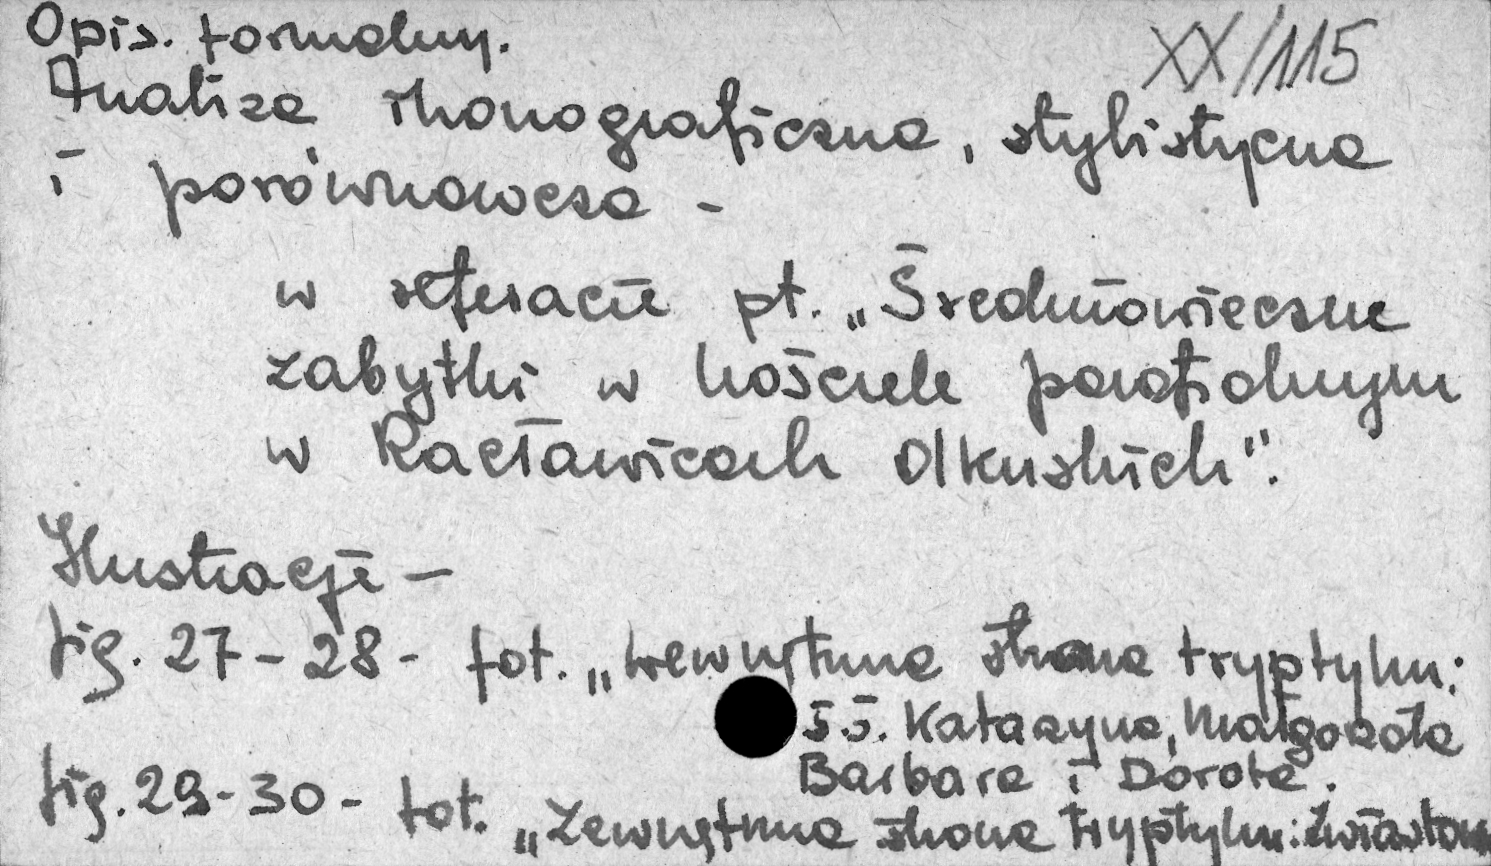 XX/115
Opis. formalny.
Analiza ikonograficzna, stylistyczna
i porównawcza -
w referacie pt. „Średniowieczne
zabytki w kościele parafialnym
w Racławicach Olkuskich".
Ilustracje -
fig. 27-28 - fot. „wewnętrzna strona tryptyku:
ŚŚ. Katarzyna, Małgorzata
Barbara i Dorota.
fig. 29-30 - fot. „Zewnętrzna strona tryptyku: Zwiastow